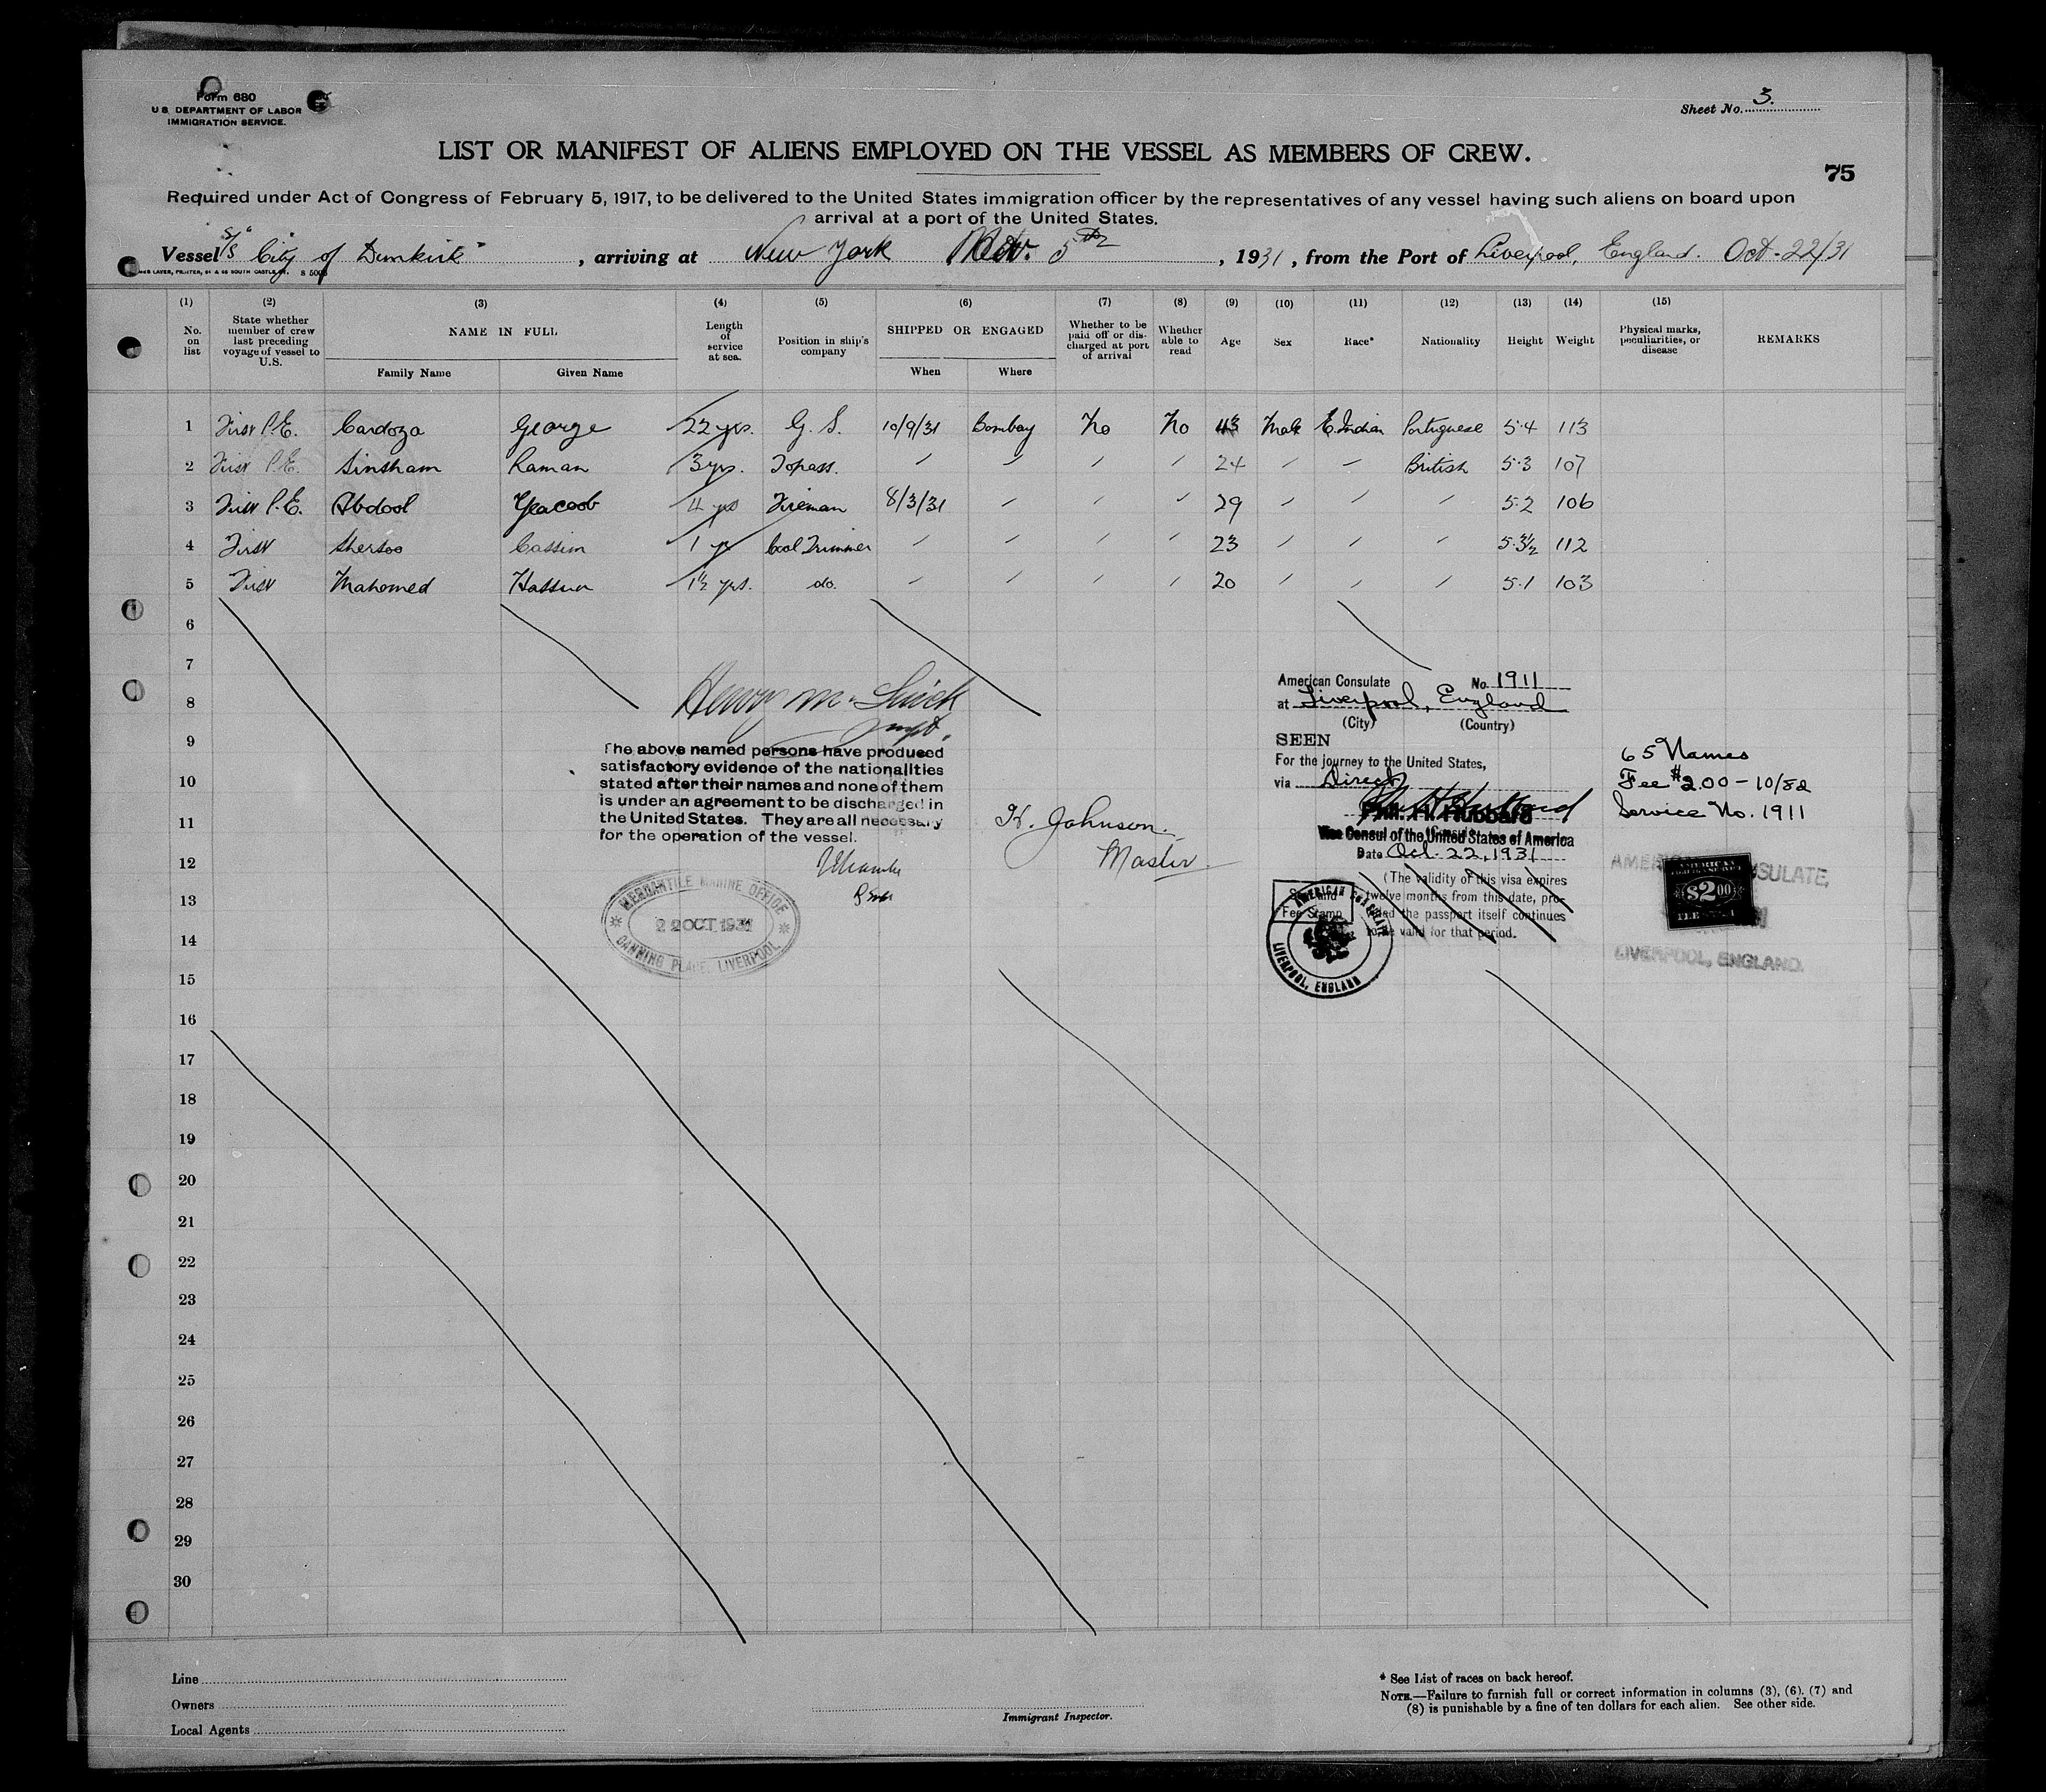 Form 680
U.S. DEPARTMENT OF LABOR
IMMIGRATION SERVICE.
Sheet No. 3.
LIST OR MANIFEST OF ALIENS EMPLOYED ON THE VESSEL AS MEMBERS OF CREW.
75
Required under Act of Congress of February 5, 1917, to be delivered to the United States immigration officer by the representatives of any vessel having such aliens on board upon
arrival at a port of the United States.
Vessel S/S "City of Dunkirk", arriving at New York Nov. 5th, 1931, from the Port of Liverpool, England. Oct. 22/31
(1) (2) (3) (4) (5) (6) (7) (8) (9) (10) (11) (12) (13) (14) (15)
No. on list State whether member of crew last preceding voyage of vessel to U.S. NAME IN FULL Family Name Given Name Length of service at sea. Position in ship's company SHIPPED OR ENGAGED When Where Whether to be paid off or discharged at port of arrival Whether able to read Age Sex Race* Nationality Height Weight Physical marks, peculiarities, or disease REMARKS
1 First P.E. Cardoza George 22 yrs. G. S. 10/9/31 Bombay No No 43 Male E.Indian Portuguese 5·4 113
2 First P.E. Sinsham Raman 3 yrs. Topass. 24 British 5·3 107
3 First P.E. Abdool Yeacoob 4 yrs Fireman 8/3/31 29 5·2 106
4 First Shersoo Cassim 1 yr Coal Trimmer 23 5·3½ 112
5 First Mahomed Hassun 1½ yrs. do. 20 5·1 103
6
7
8
9
10
11
12
13
14
15
16
17
18
19
20
21
22
23
24
25
26
27
28
29
30
Supt.
The above named persons have produced
satisfactory evidence of the nationalities
stated after their names and none of them
is under an agreement to be discharged in
the United States. They are all necessary
for the operation of the vessel.
MERCANTILE MARINE OFFICE
22 OCT 1931
CANNING PLACE, LIVERPOOL
H. Johnson.
Master
American Consulate No. 1911
at Liverpool, England
(City) (Country)
SEEN
For the journey to the United States,
via Direct
H. Hubbard
Vice Consul of the United States of America
Date Oct. 22, 1931
(The validity of this visa expires
twelve months from this date, provided the passport itself continues
to be valid for that period.
Seal and
Fee Stamp
AMERICAN CONSULATE
LIVERPOOL, ENGLAND
65 Names
Fee $2.00 - 10/82
Service No. 1911
AMERICAN CONSULATE,
$2.00
LIVERPOOL, ENGLAND.
Line
Owners
Local Agents
Immigrant Inspector.
* See List of races on back hereof.
NOTE.—Failure to furnish full or correct information in columns (3), (6), (7) and
(8) is punishable by a fine of ten dollars for each alien. See other side.